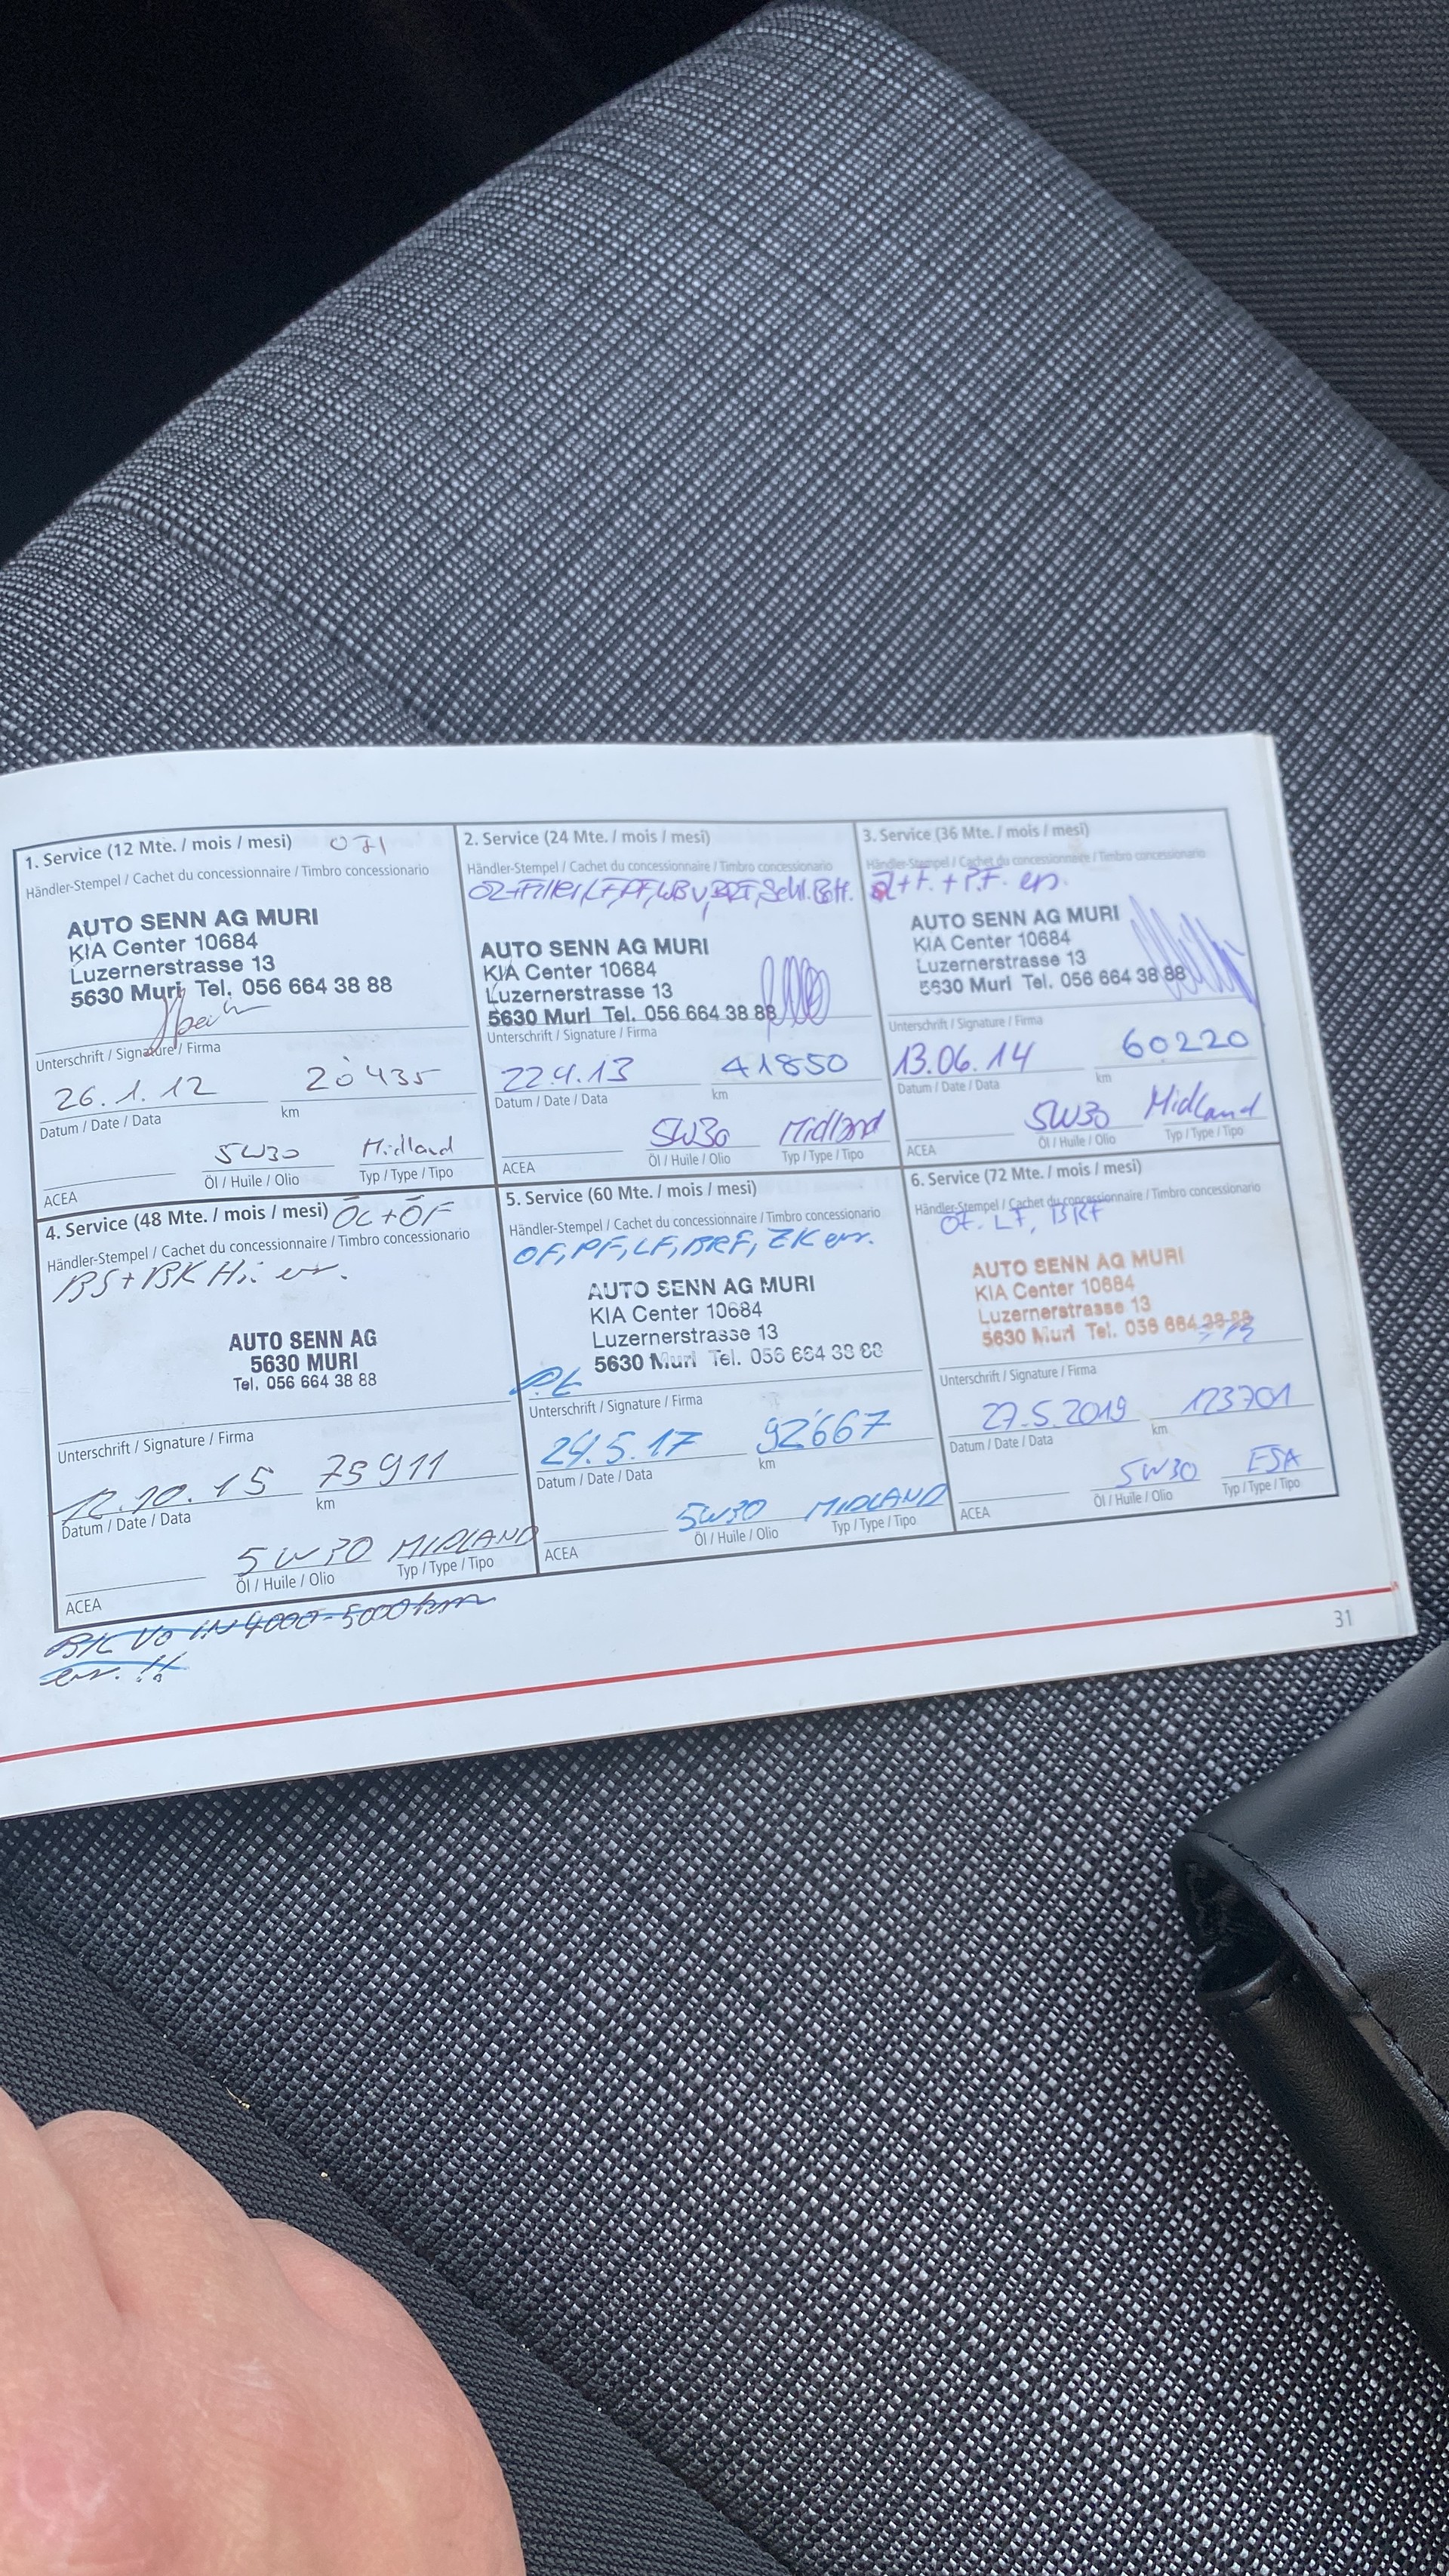 1. Service (12 Mte. / mois / mesi)
Händler-Stempel / Cachet du concessionnaire / Timbro concessionario
AUTO SENN AG MURI
KIA Center 10684
Luzernerstrasse 13
5630 Muri Tel. 056 664 38 88
Unterschrift / Signature / Firma
26.1.12 20'435
Datum / Date / Data km
5W30 Midland
ACEA Öl / Huile / Olio Typ / Type / Tipo
2. Service (24 Mte. / mois / mesi)
Händler-Stempel / Cachet du concessionnaire / Timbro concessionario
AUTO SENN AG MURI
KIA Center 10684
Luzernerstrasse 13
5630 Muri Tel. 056 664 38 88
Unterschrift / Signature / Firma
22.4.13 41850
Datum / Date / Data km
5W30 Midland
ACEA Öl / Huile / Olio Typ / Type / Tipo
3. Service (36 Mte. / mois / mesi)
Händler-Stempel / Cachet du concessionnaire / Timbro concessionario
+ F. + P.F. en.
AUTO SENN AG MURI
KIA Center 10684
Luzernerstrasse 13
5630 Muri Tel. 056 664 38 88
Unterschrift / Signature / Firma
13.06.14 60220
Datum / Date / Data km
5W30 Midland
ACEA Öl / Huile / Olio Typ / Type / Tipo
4. Service (48 Mte. / mois / mesi) ÖL + ÖF
Händler-Stempel / Cachet du concessionnaire / Timbro concessionario
BS + BK Hi. er.
AUTO SENN AG
5630 MURI
Tel. 056 664 38 88
Unterschrift / Signature / Firma
12.10.15 75911
Datum / Date / Data km
5W30 MIDLAND
ACEA Öl / Huile / Olio Typ / Type / Tipo
BK Vo IN 4000-5000 km
er. !!
5. Service (60 Mte. / mois / mesi)
Händler-Stempel / Cachet du concessionnaire / Timbro concessionario
OF, PF, LF, BRF, ZK er.
AUTO SENN AG MURI
KIA Center 10684
Luzernerstrasse 13
5630 Muri Tel. 056 664 38 88
Unterschrift / Signature / Firma
24.5.17 92'667
Datum / Date / Data km
5W30 MIDLAND
ACEA Öl / Huile / Olio Typ / Type / Tipo
6. Service (72 Mte. / mois / mesi)
Händler-Stempel / Cachet du concessionnaire / Timbro concessionario
OF. LF, BRF
AUTO SENN AG MURI
KIA Center 10684
Luzernerstrasse 13
5630 Muri Tel. 056 664 38 88
Unterschrift / Signature / Firma
27.5.2019 123701
Datum / Date / Data km
5W30 ESA
ACEA Öl / Huile / Olio Typ / Type / Tipo
31